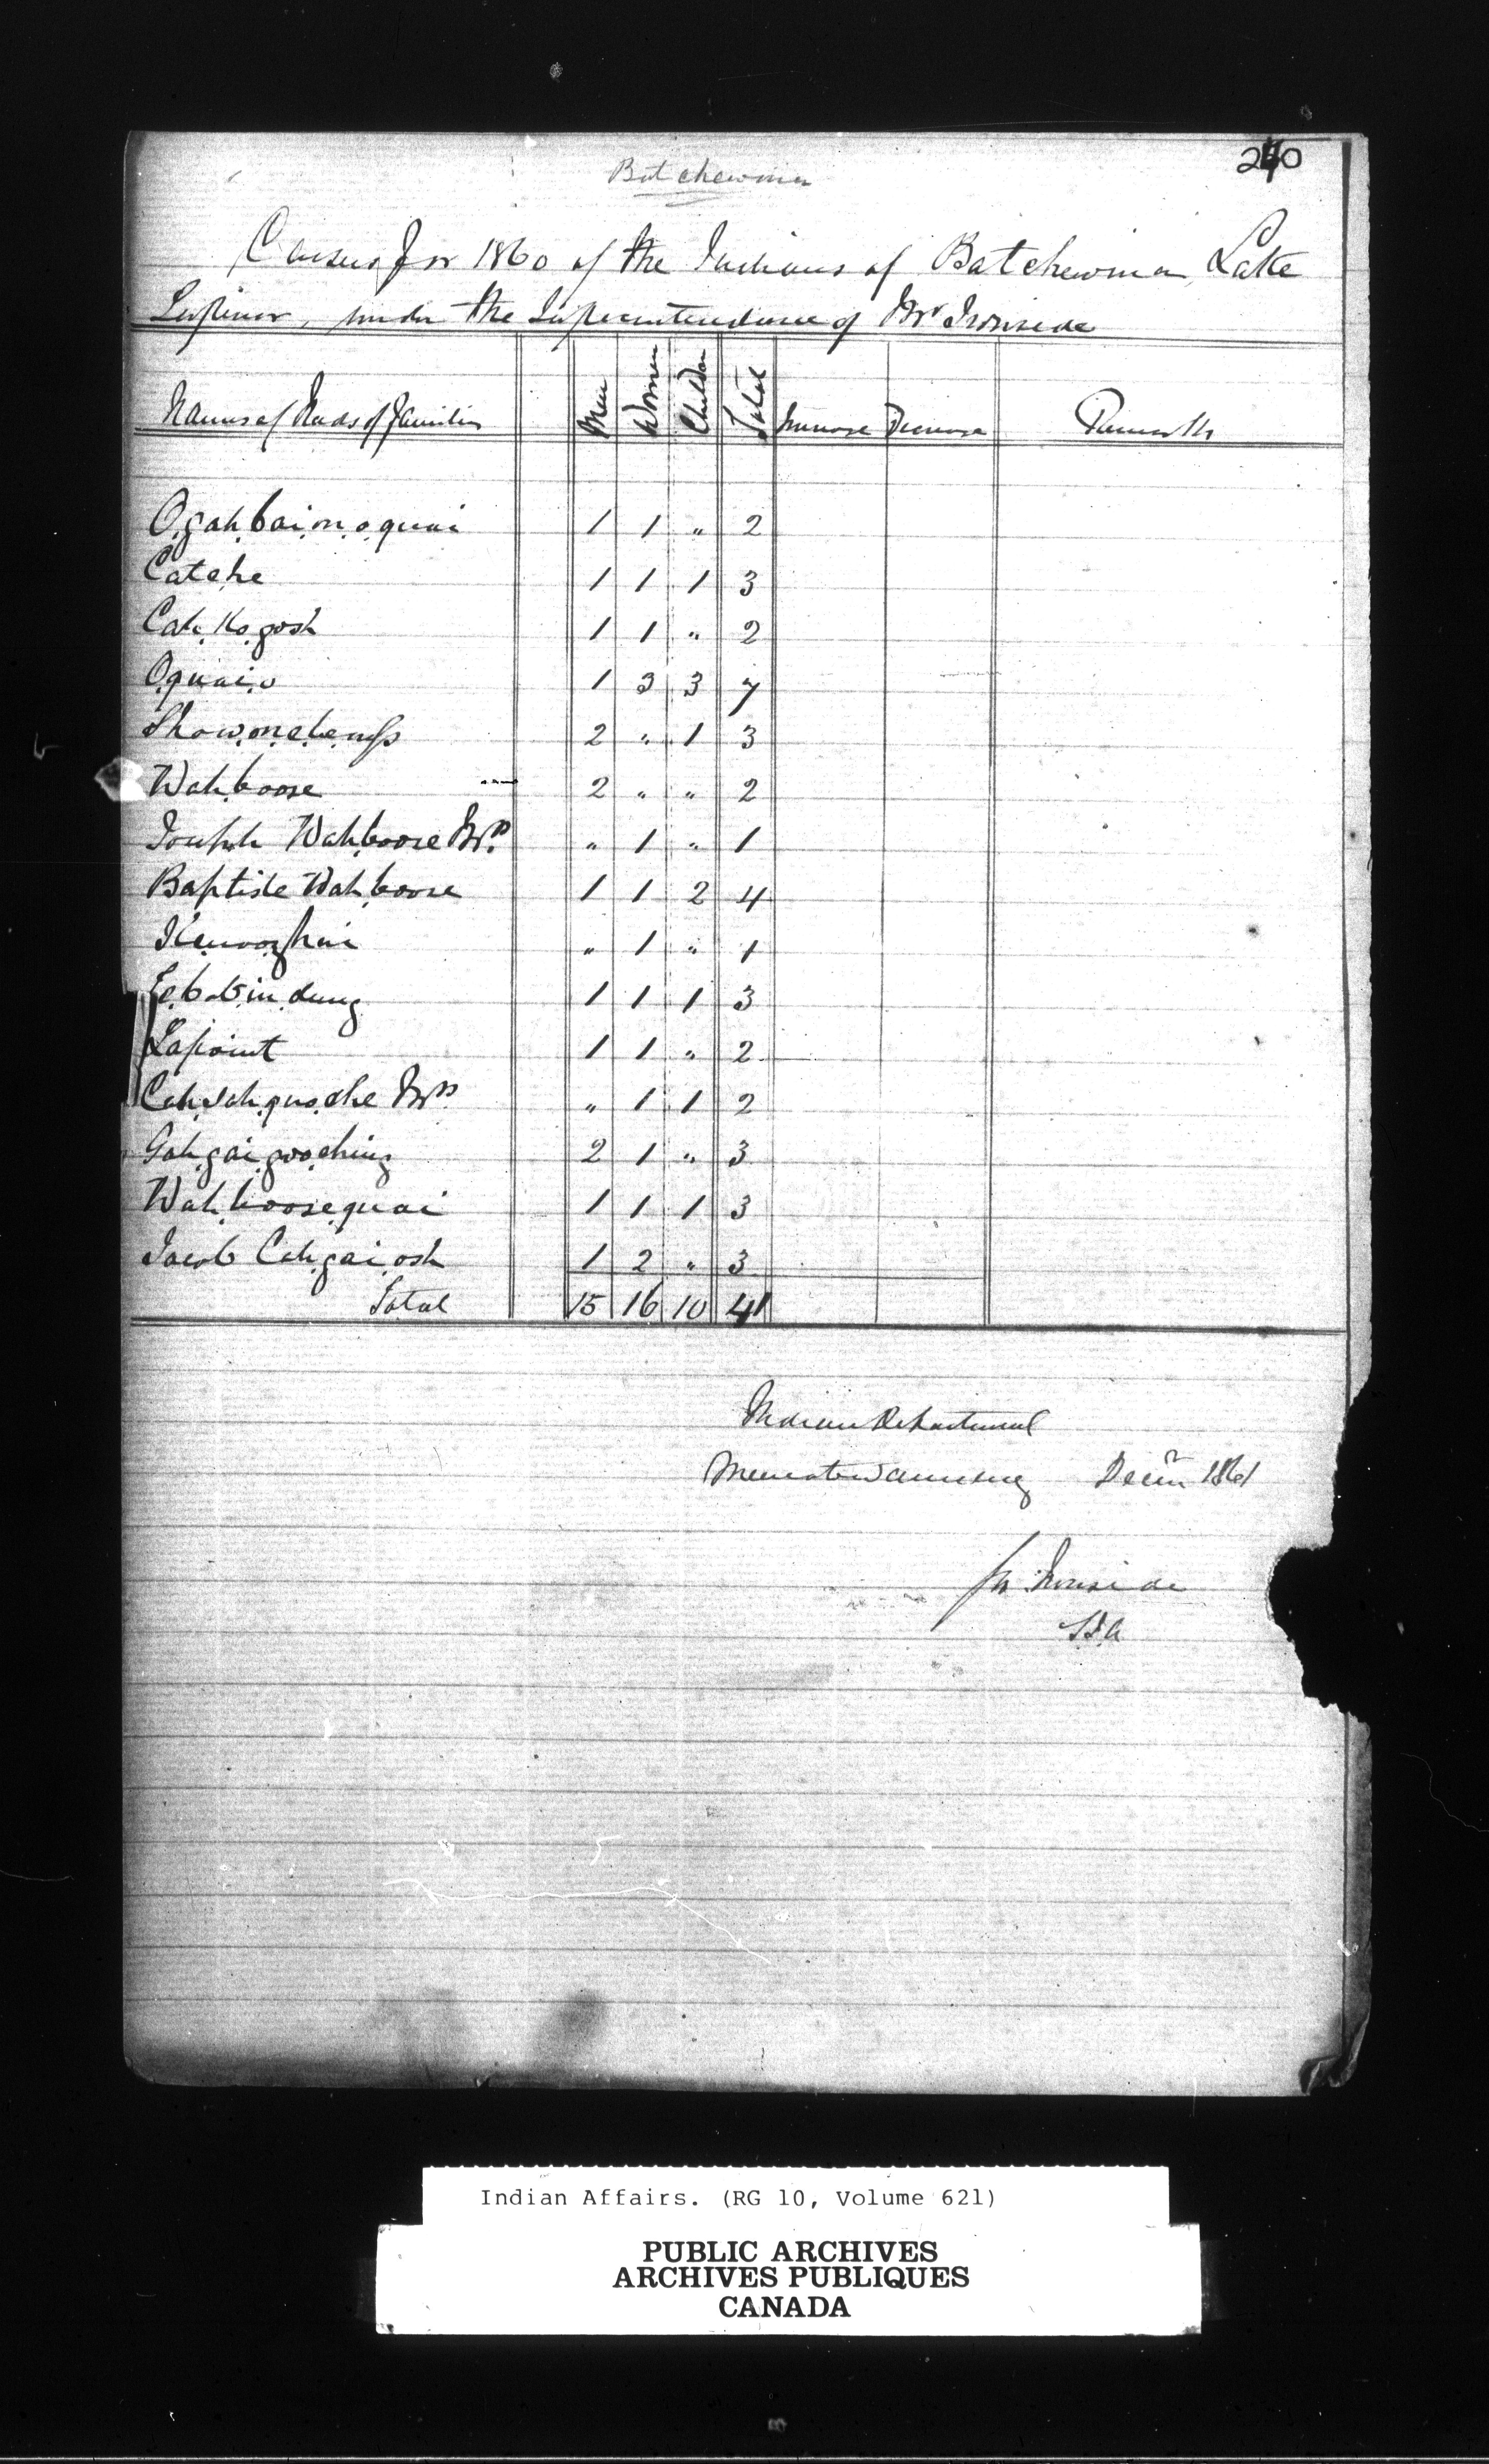 Batchewina
Census for 1860 of the Indians of Batchewina, Lake
Superior, under the Superintendence of Mr Ironside
Names of Heads of Families Men Women Children Total Increase Decrease Remarks
O.gah.bai.m.o.quai 1 1 " 2
Catche 1 1 1 3
Cah.Ko.gosh 1 1 " 2
Oquai.o 1 3 3 7
2 " 1 3
Wah.boose 2 " " 2
Joseph Wah.boose Mrs " 1 " 1
Baptiste Wah.boose 1 1 2 4
" 1 " 1
1 1 1 3
Lapoint 1 1 " 2
Mrs " 1 1 2
Gah.gai.goo.ching 2 1 " 3
Wah.boose.quai 1 1 1 3
Jacob Cah.gai.osh 1 2 " 3
Total 15 16 10 41
Indian Department
1861
Ironside
SIA
Indian Affairs. (RG 10, Volume 621)
PUBLIC ARCHIVES
ARCHIVES PUBLIQUES
CANADA